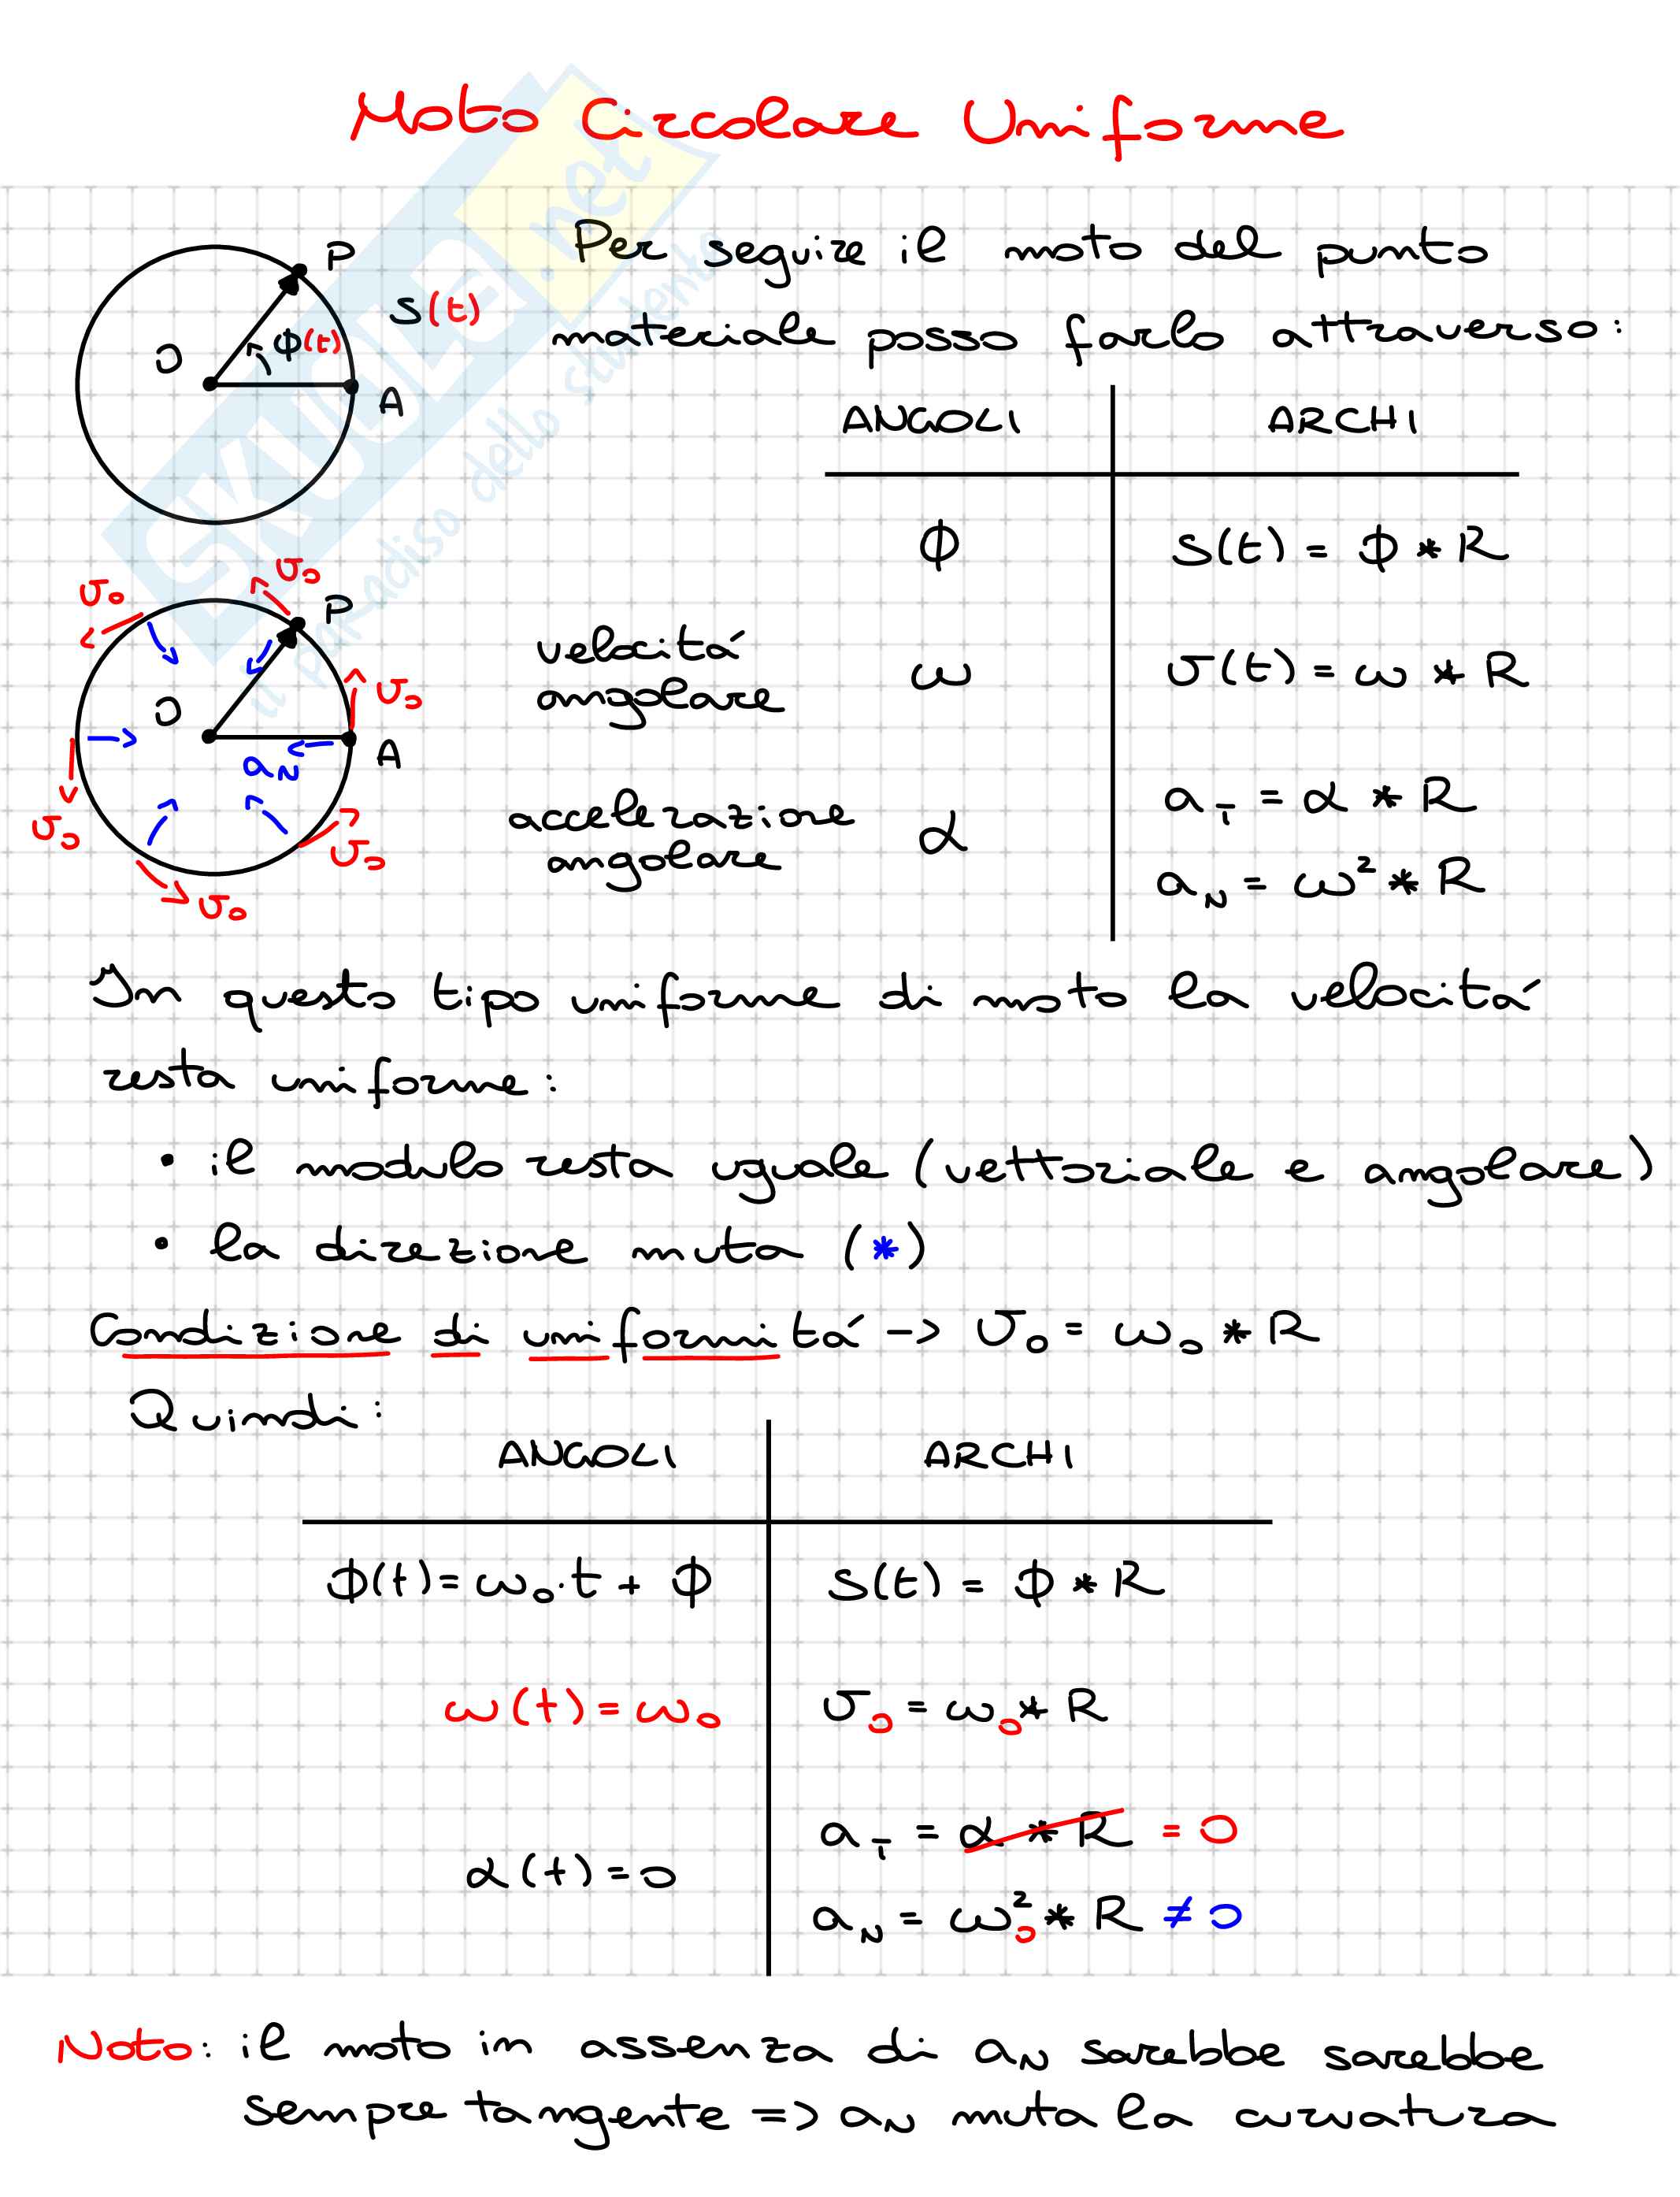 Moto Circolare Uniforme
P
S(t)
ϕ(t)
O
A
Per seguire il moto del punto
materiale posso farlo attraverso:
ANGOLI ARCHI
ϕ S(t) = ϕ * R
velocitá
angolare
ω v(t) = ω * R
accelerazione
angolare
α a_T = α * R
a_N = ω² * R
v₀ v₀
P
O
v₀
A
a_N
v₀
v₀
v₀
In questo tipo uniforme di moto la velocitá
resta uniforme:
• il modulo resta uguale (vettoriale e angolare)
• la direzione muta (*)
Condizione di uniformitá -> v₀ = ω₀ * R
Quindi:
ANGOLI ARCHI
ϕ(t) = ω₀·t + ϕ S(t) = ϕ * R
ω(t) = ω₀ v₀ = ω₀ * R
α(t) = 0 a_T = α * R = 0
a_N = ω₀² * R ≠ 0
Noto: il moto in assenza di a_N sarebbe sarebbe
sempre tangente => a_N muta la curvatura
SKUOLA.net
il paradiso dello studente